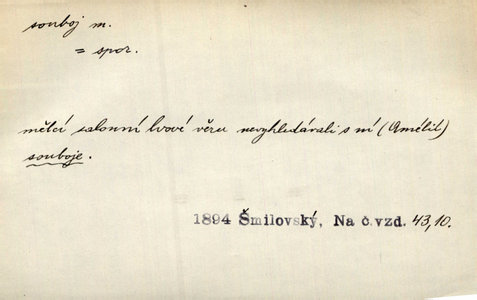 souboj m.
= spor.
mělcí salonní lvové věru nevyhledávali s ní (Amélií)
souboje.
1894 Šmilovský, Na č.vzd. 43,10.